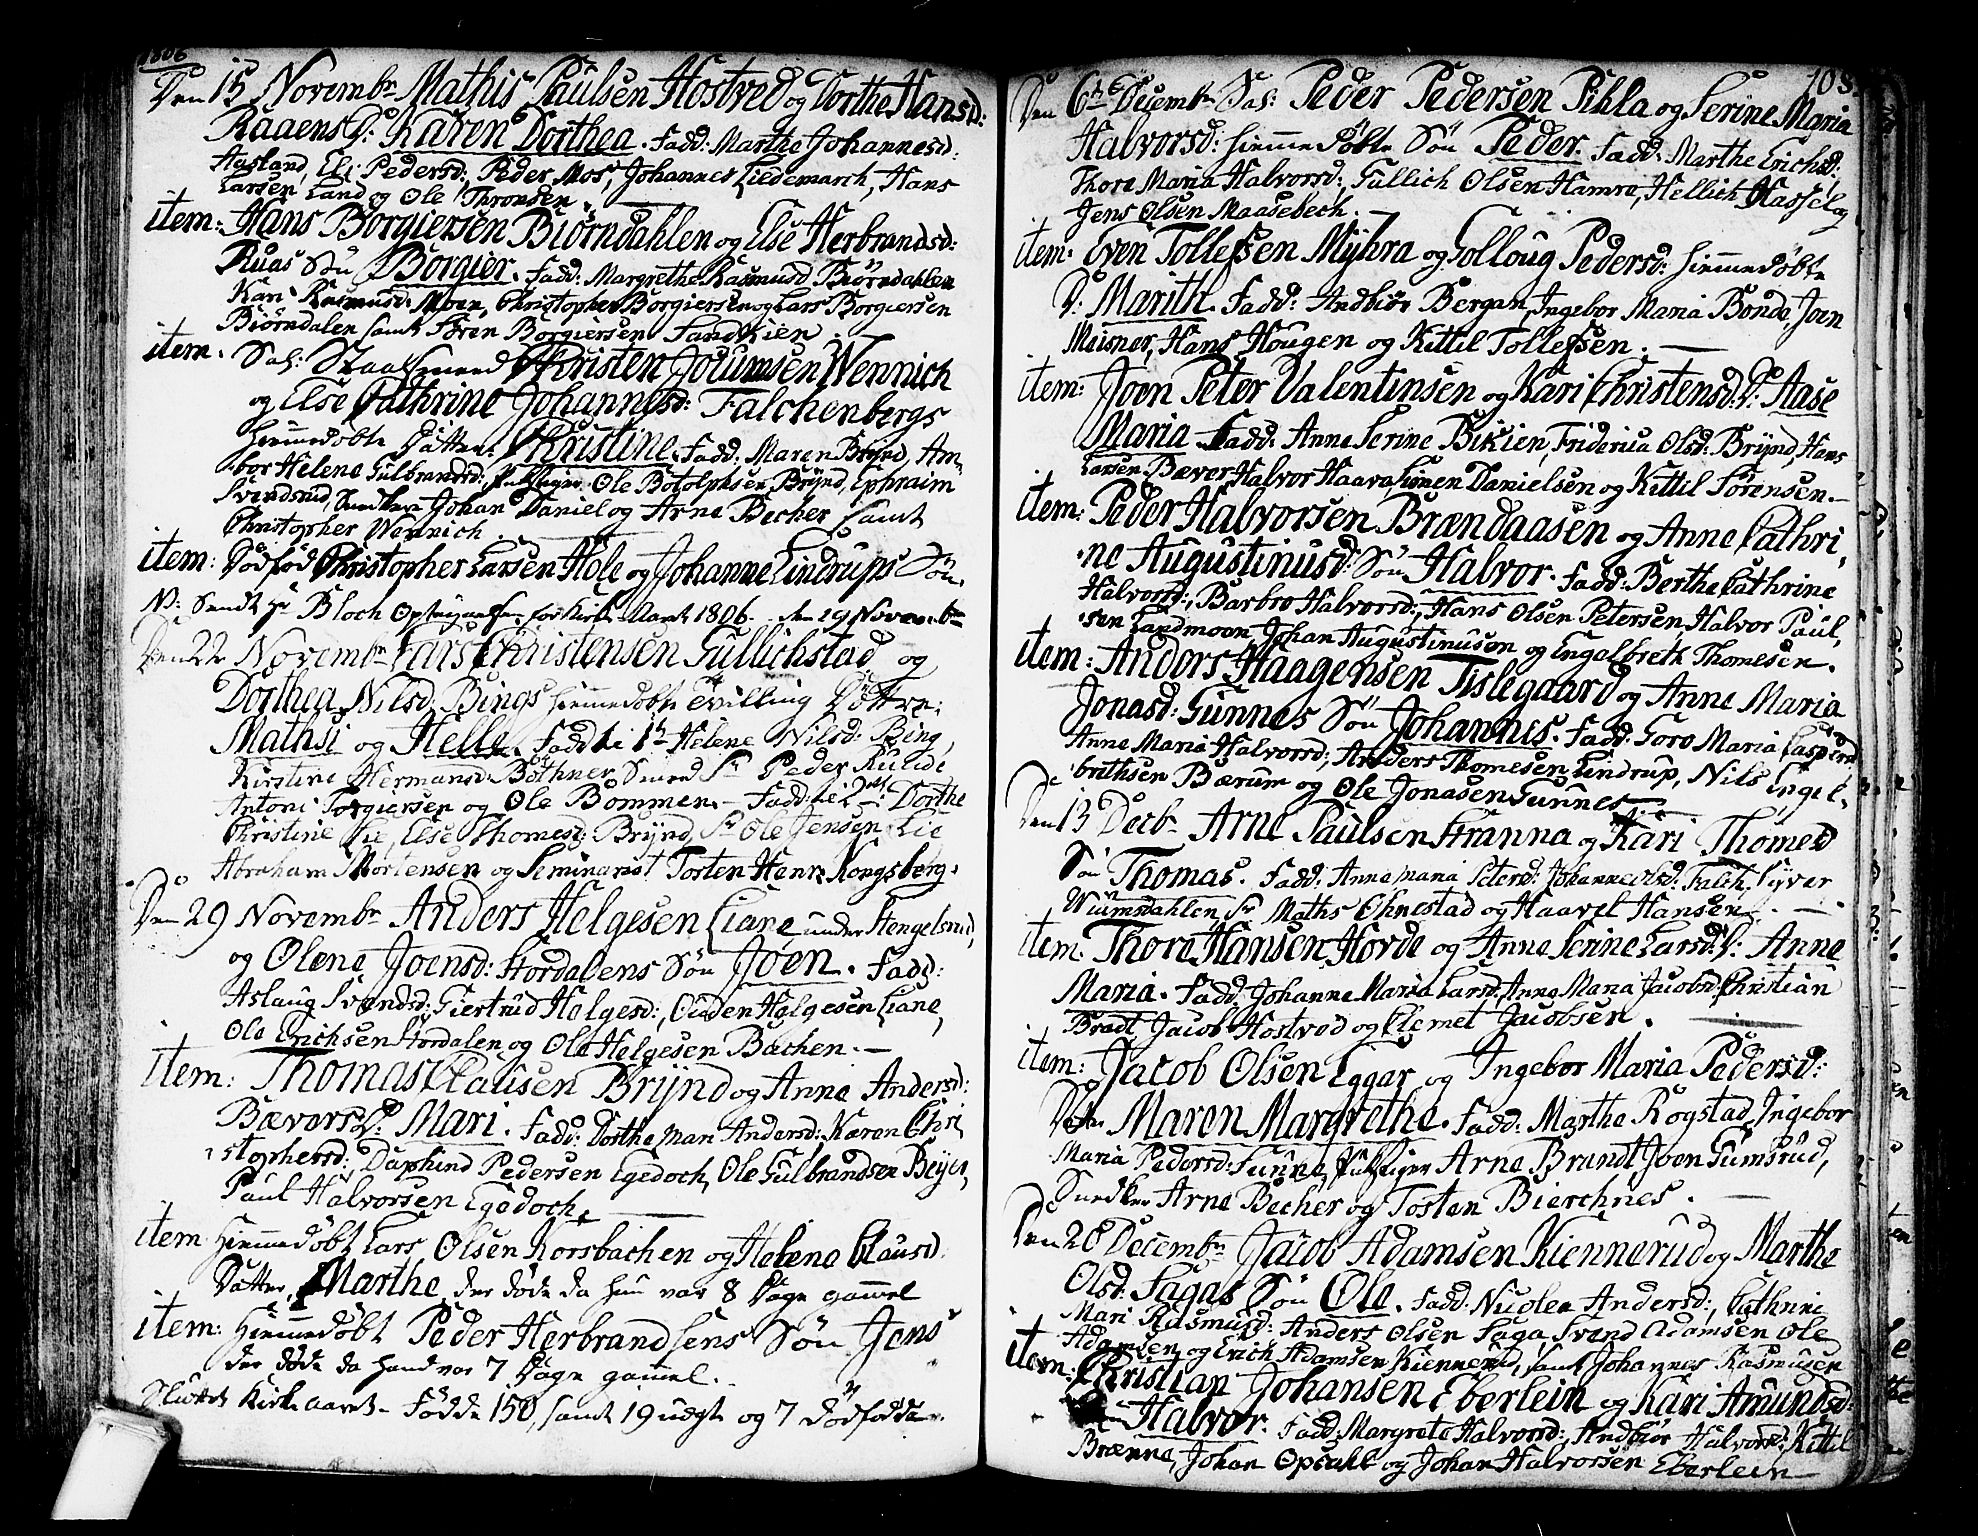 1806
Den 15 Novembr Mathis Paulsen Hostved og Dorthe Hansd:
Raaens D: Karen Dorthea. Fadd: Marthe Johannesd:
Aasland, Eli Pedersd, Peder Mos, Johannes Liedemarch, Hans
Larsen Land og Ole Thronsen.
item: Hans Borgiersen Biørndahlen og Else Herbrandsd:
Ruas Søn Borgier. Fadd: Margrethe Rasmusd Biørndahlen
Kari Rasmusd: Moen, Christopher Borgiersen og Lars Borgiersen
Biørndalen samt Søren Borgiersen
item. Sal: Christen Wennich
og Else Cathrine Johannesd: Falchenbergs
hiemmedøbte Datter Christine. Fadd: Maren Brynd, Am-
bor Helene Gulbrandsd: Ole Botolphsen Brynd, Ephraim
Svendsrud, Snedker Johan Daniel og Arne Becher samt
Christopher Wennich
item: Dødfød Christopher Larsen Hole og Johanne Lindrups Søn.
N: Sendt Hr Bloch for Kirke Aaret 1806. den 29 Novembr
Den 22 Novembr Lars Christensen Gullichstad og
Dorthea Nilsd Bings hiemmedøbte Tvilling Døttre:
Mathsi og Helle. Fadd: te 1t Helene Nilsd: Bing,
Kirstine Hermansd: Bøthner Smed Sr Peder
Antoni Torgiersen og Ole Bommen. – Fadd: te 2t: Dorthe
Christine Lie, Else Thomesd: Brynd, Sr Ole Jensen Lie
Abraham Mortensen og Seminarist Tosten Kongsberg.
Den 29 Novembr Anders Helgesen Liane under Hengelsrud,
og Olene Joensd: Stordalens Søn Joen. Fadd:
Aslaug Svendsd: Giertrud Helgesd:, Ouden Helgesen Liane,
Ole Erichsen Stordalen og Ole Helgesen Bachen. –
item: Thomas Clausen Brynd og Anne Andersd:
Bævers D: Mari. Fadd: Dorthe Mari Andersd: Karen Chri
stophersd:, Daphind Pedersen Egedoch, Ole Gulbrandsen Beyer,
Paul Halvorsen Egedoch.
item hiemmedøbt Lars Olsen Korsbachen og Helene Clausd.
Datter, Marthe, der døde da hun var 8 Dage gammel
item: hiemmedøbt Peder Herbrandsens Søn Jens
der døde da hand var 7 Dage gammel.
Sluttet Kirke aaret – Fødde 150, samt 19 uægte og 7 dødfødde.
108
Den 6te Decembr Sal: Peder Pedersen Pikla og Serine Maria
Halvorsd: hiemmedøbte Søn Peder. Fadd: Marthe Erichsd:
Thore Maria Halvorsd:, Gullich Olsen Hamre, Hellich Hasselg
Jens Olsen Maasebech.
item: Even Tollefsen Myhra og Golloug Pedersd: hiemmedøbte
D: Marith. Fadd: Andbiør Bergan, Ingebor Maria Bonde, Joen
Meisner, Hans Hougen og Kittil Tollefsen.
item: Joen Peter Valentinsen og Kari Christensd: D: Aase
Maria. Fadd: Anne Serine Bikien, Friderica Olsd: Brynd, Hans
Larsen Bæver Halvor Danielsen og Kittil Sørensen. –
item: Peder Halvorsen Brændaasen og Anne Cathri
ne Augustinusd: Søn Halvor. Fadd: Berthe Cathrine
Halvorsd:, Barbro Halvorsd:, Hans Olsen Petersen, Halvor Paul,
sen Landmoen Johan Augustinusen og Engelbreth Thomesen.
item: Anders Haagensen Tislegaard og Anne Maria
Jonasd: Gunnes Søn Johannis. Fadd: Goro Maria Caspersd
Anne Maria Halvorsd:, Anders Thomesen Lindrup, Nils Engel-
brethsen Bærum og Ole Jonasen Gunnes
Den 13 Decbr Arne Paulsen Stranna og Kari Thomesd
Søn Thomas. Fadd: Anne Maria Petersd: Johannes Olsd: Falck, Syver
Wiumsdahlen, Sr Maths Ohnestad og Haavel Hansen.
item: Thore Hansen Horde og Anne Serine Larsd: D: Anne
Maria. Fadd: Johanne Maria Larsd:, Anne Maria Jacobsd: Christian
Bradt Jacob Hostved og Clemet Jacobsen.
item: Jacob Olsen Eggar og Ingebor Maria Pedersd:
Datter Maren Margrethe. Fadd: Marthe Rogstad, Ingebor
Maria Pedersd: Funne, Arne Brandt Joen Gumsrud,
Snedker Arne Becher og Tosten Bierchnes.
Den 26 Decembr Jacob Adamsen Kiennerud og Marthe
Olsd: Sagas Søn Ole. Fadd: Nicolea Andersd:, Cathrine
Mari Rasmusd: Anders Olsen Saga, Svend Adamsen Ole
Adamsen og Erich Adamsen Kiennerud, samt Johannes Rasmusen
item: Christian Johansen Eberlein og Kari Amundsd:
Halvor. Fadd: Margrete Halvorsd:, Andbiør Halvorsd: Kittil
Brænne, Johan Opsahl og Johan Halvorsen Eberlein